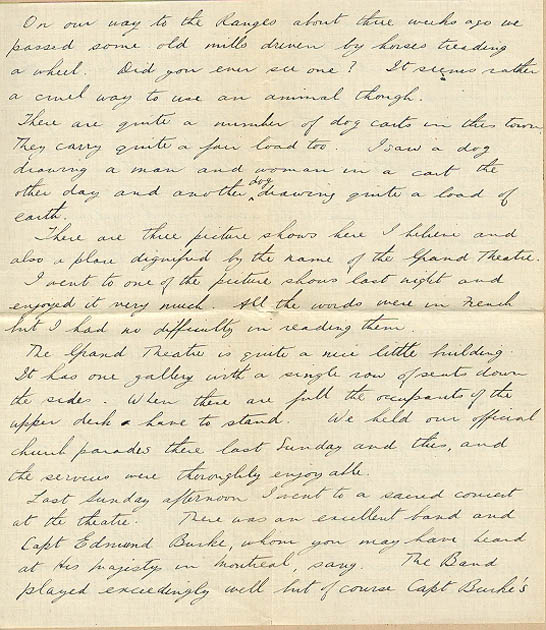 On our way to the Ranges about three weeks ago we
passed some old mills driven by horses treading
a wheel. Did you ever see one? It seems rather
a cruel way to use an animal though.
There are quite a number of dog carts in this town.
They carry quite a fair load too. I saw a dog
drawing a man and woman in a cart the
dog
other day and another drawing quite a load of
earth.
There are three picture shows here I believe and
also a place dignified by the name of the Grand Theatre.
I went to one of the picture shows last night and
enjoyed it very much. All the words were in French
but I had no difficulty in reading them.
The Grand Theatre is quite a nice little building.
It has one gallery with a single row of seats down
the sides. When these are full the occupants of the
upper deck have to stand. We held our official
church parades there last Sunday and this, and
the services were thoroughly enjoyable.
Last Sunday afternoon I went to a sacred concert
at the theatre. There was an excellent band and
Capt Edmund Burke, whom you may have heard
at His Majestys in Montreal, sang. The Band
played exceedingly well but of course Capt Burke's